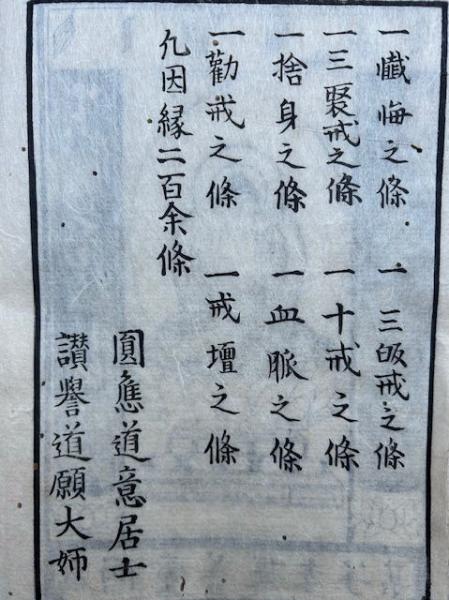 一懺悔之條 一三皈戒之條
一三聚戒之條 一十戒之條
一捨身之條 一血脈之條
一勸戒之條 一戒壇之條
凢因縁二百余條
圓應道意居士
讃譽道願大姉